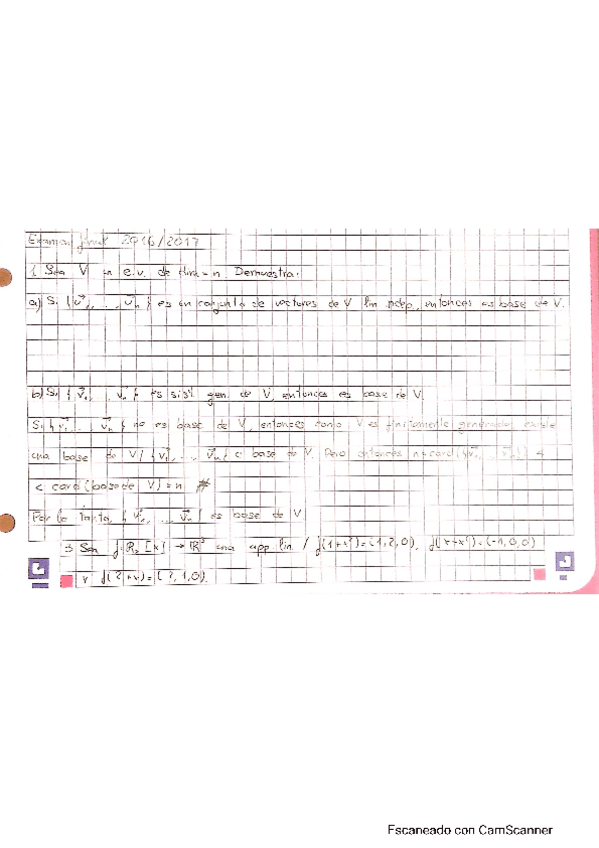 Examen final 2016/2017
1. Sea V un e.v. de dim = n. Demuestra:
a) Si {v⃗₁, ..., v⃗ₙ} es un conjunto de vectores de V lin indep, entonces es base de V.
b) Si {v⃗₁, ..., v⃗ₙ} es sist. gen. de V, entonces es base de V.
Si {v⃗₁, ..., v⃗ₙ} no es base de V, entonces como V es finitamente generado, existe
una base de V / {v⃗₁, ..., v⃗ₙ} base de V. Pero entonces n = card({v⃗₁, ..., v⃗ₙ}) <
< card(base de V) = n #
Por lo tanto, {v⃗₁, ..., v⃗ₙ} es base de V
3 Sea f: ℝ₂[x] → ℝ³ una app lin. / f(1+x²)=(1,2,0), f(x+x²)=(-1,0,0)
y f(2+x)=(2,1,0).
Escaneado con CamScanner